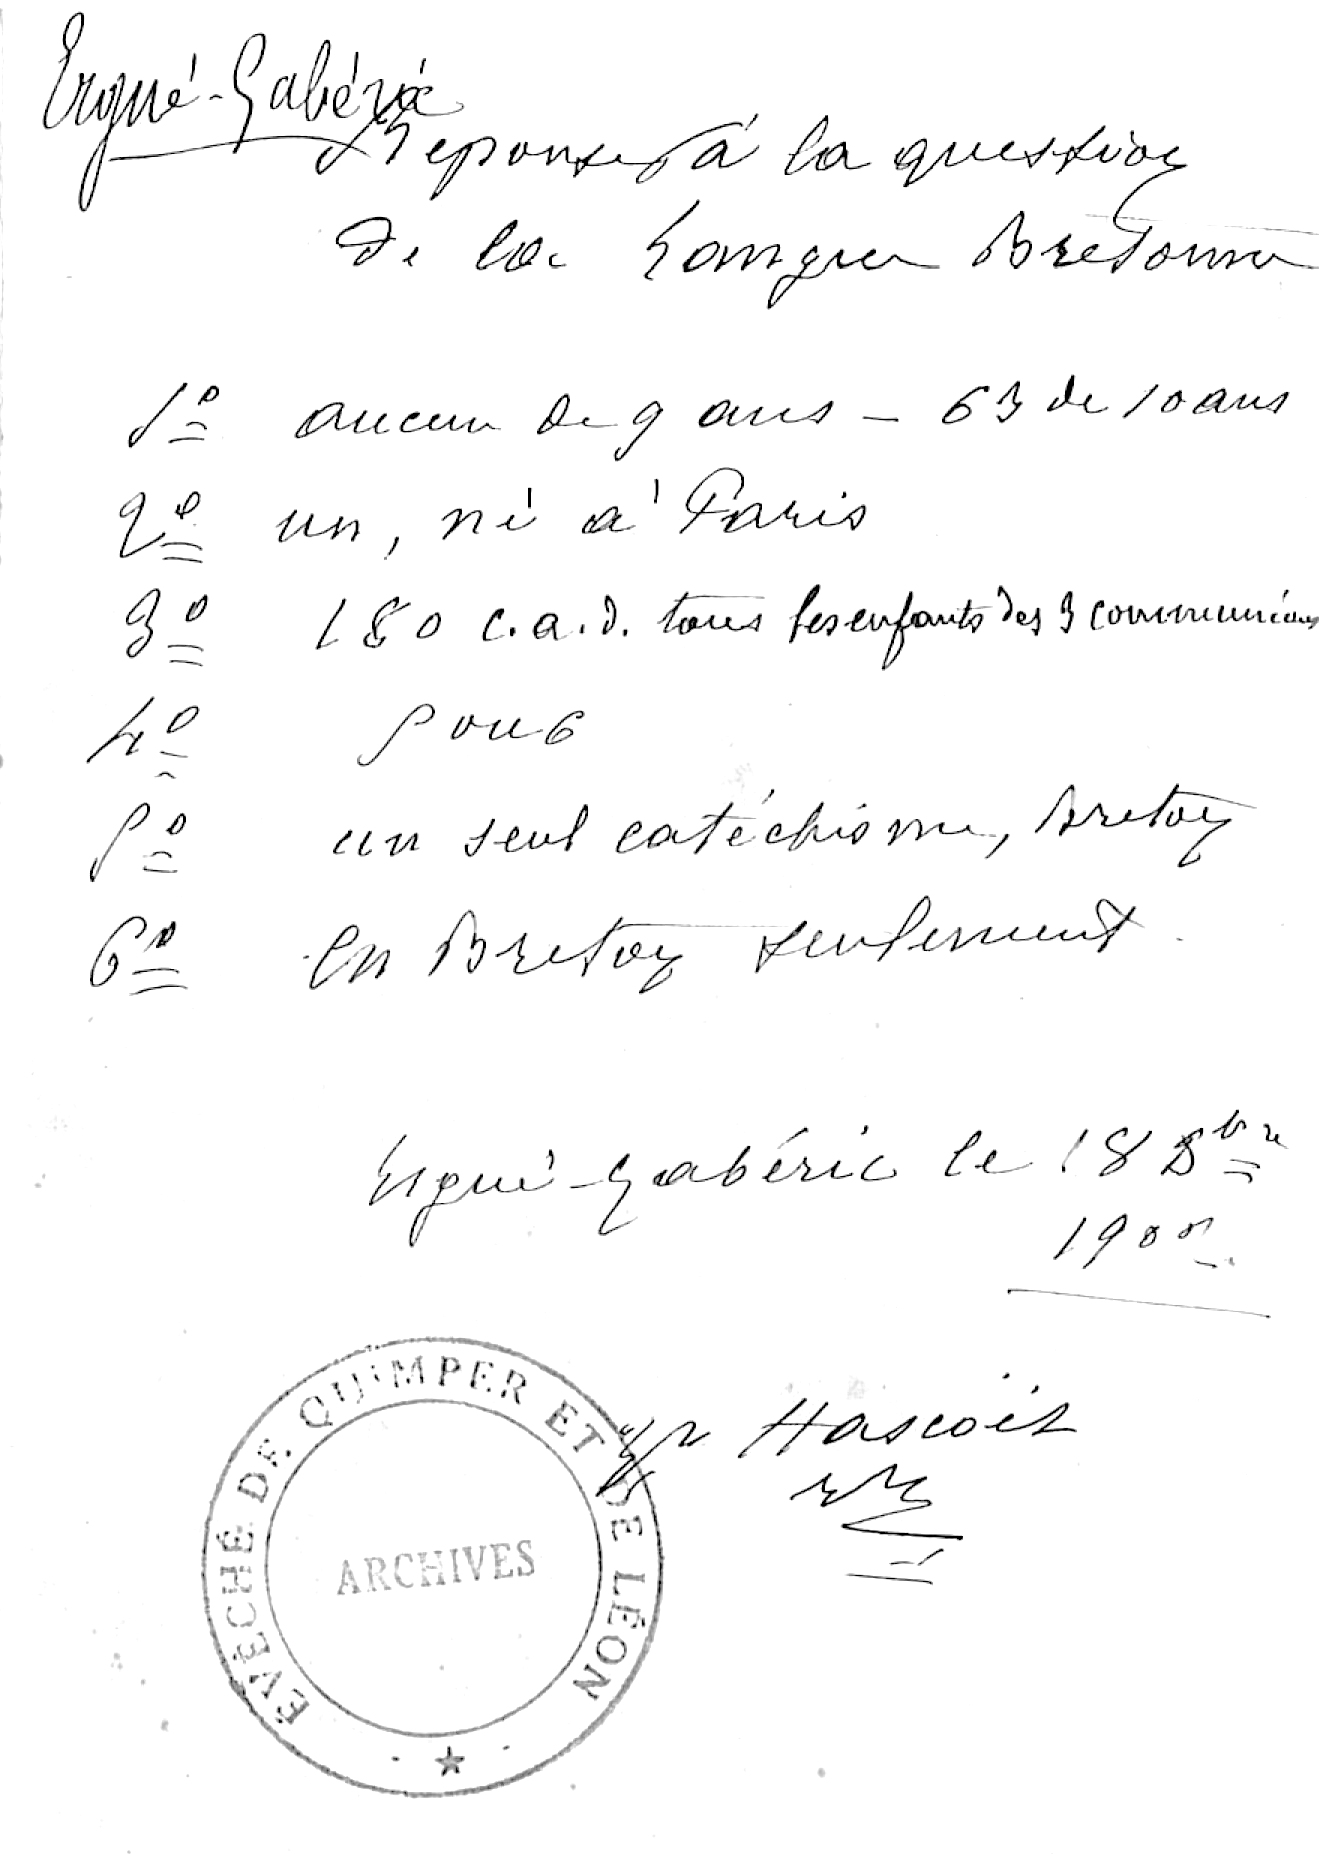 Ergué-Gabéric
Reponses à la question
de la Langue Bretonne
1º aucun de 9 ans – 63 de 10 ans
2º un, né à Paris
3º 180 c.a.d. tous les enfants des 3 communions
4º 5 ou 6
5º un seul catéchisme, Breton
6º En Breton seulement.
Ergué-Gabéric le 18 Xbre
1902.
Hascoët
ÉVÊCHÉ DE QUIMPER ET DE LÉON
ARCHIVES